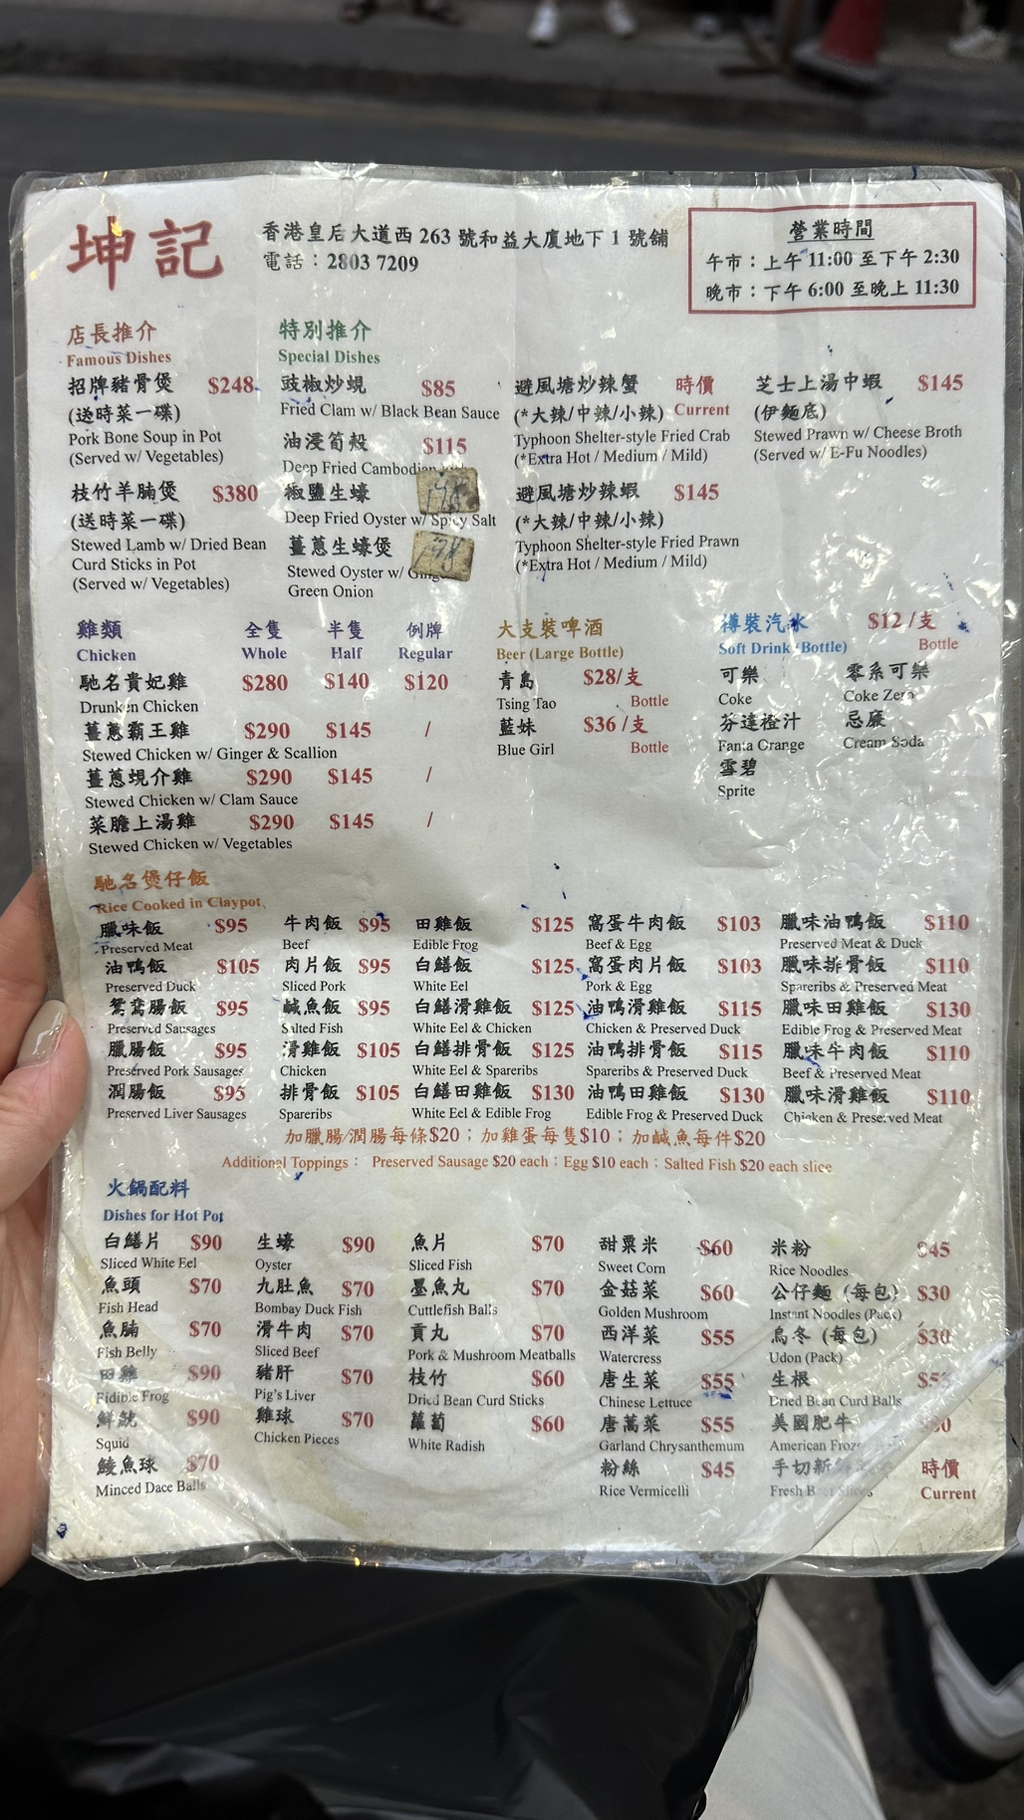 坤記
香港皇后大道西 263 號和益大廈地下 1 號舖
電話：2803 7209
營業時間
午市：上午 11:00 至下午 2:30
晚市：下午 6:00 至晚上 11:30
店長推介
Famous Dishes
招牌豬骨煲 $248
(送時菜一碟)
Pork Bone Soup in Pot
(Served w/ Vegetables)
枝竹羊腩煲 $380
(送時菜一碟)
Stewed Lamb w/ Dried Bean
Curd Sticks in Pot
(Served w/ Vegetables)
特別推介
Special Dishes
豉椒炒蜆 $85
Fried Clam w/ Black Bean Sauce
油浸筍殼 $115
Deep Fried Cambodian
椒鹽生蠔 198
Deep Fried Oyster w/ Spicy Salt
薑蔥生蠔煲 198
Stewed Oyster w/
Green Onion
避風塘炒辣蟹 時價
(*大辣/中辣/小辣) Current
Typhoon Shelter-style Fried Crab
(*Extra Hot / Medium / Mild)
避風塘炒辣蝦 $145
(*大辣/中辣/小辣)
Typhoon Shelter-style Fried Prawn
(*Extra Hot / Medium / Mild)
芝士上湯中蝦 $145
(伊麵底)
Stewed Prawn w/ Cheese Broth
(Served w/ E-Fu Noodles)
雞類 全隻 半隻 例牌
Chicken Whole Half Regular
馳名貴妃雞 $280 $140 $120
Drunken Chicken
薑蔥霸王雞 $290 $145 /
Stewed Chicken w/ Ginger & Scallion
薑蔥蜆介雞 $290 $145 /
Stewed Chicken w/ Clam Sauce
菜膽上湯雞 $290 $145 /
Stewed Chicken w/ Vegetables
大支裝啤酒
Beer (Large Bottle)
青島 $28/支
Tsing Tao Bottle
藍妹 $36 /支
Blue Girl Bottle
樽裝汽水 $12 /支
Soft Drink (Bottle) Bottle
可樂 零系可樂
Coke Coke Zero
芬達橙汁 忌廉
Fanta Orange Cream Soda
雪碧
Sprite
馳名煲仔飯
Rice Cooked in Claypot
臘味飯 $95 牛肉飯 $95 田雞飯 $125 窩蛋牛肉飯 $103 臘味油鴨飯 $110
Preserved Meat Beef Edible Frog Beef & Egg Preserved Meat & Duck
油鴨飯 $105 肉片飯 $95 白鱔飯 $125 窩蛋肉片飯 $103 臘味排骨飯 $110
Preserved Duck Sliced Pork White Eel Pork & Egg Spareribs & Preserved Meat
鴛鴦腸飯 $95 鹹魚飯 $95 白鱔滑雞飯 $125 油鴨滑雞飯 $115 臘味田雞飯 $130
Preserved Sausages Salted Fish White Eel & Chicken Chicken & Preserved Duck Edible Frog & Preserved Meat
臘腸飯 $95 滑雞飯 $105 白鱔排骨飯 $125 油鴨排骨飯 $115 臘味牛肉飯 $110
Preserved Pork Sausages Chicken White Eel & Spareribs Spareribs & Preserved Duck Beef & Preserved Meat
潤腸飯 $95 排骨飯 $105 白鱔田雞飯 $130 油鴨田雞飯 $130 臘味滑雞飯 $110
Preserved Liver Sausages Spareribs White Eel & Edible Frog Edible Frog & Preserved Duck Chicken & Preserved Meat
加臘腸/潤腸每條$20；加雞蛋每隻$10；加鹹魚每件$20
Additional Toppings： Preserved Sausage $20 each；Egg $10 each；Salted Fish $20 each slice
火鍋配料
Dishes for Hot Pot
白鱔片 $90 生蠔 $90 魚片 $70 甜粟米 $60 米粉 $45
Sliced White Eel Oyster Sliced Fish Sweet Corn Rice Noodles
魚頭 $70 九肚魚 $70 墨魚丸 $70 金菇菜 $60 公仔麵 (每包) $30
Fish Head Bombay Duck Fish Cuttlefish Balls Golden Mushroom Instant Noodles (Pack)
魚腩 $70 滑牛肉 $70 貢丸 $70 西洋菜 $55 烏冬 (每包) $30
Fish Belly Sliced Beef Pork & Mushroom Meatballs Watercress Udon (Pack)
田雞 $90 豬肝 $70 枝竹 $60 唐生菜 $55 生根
Edible Frog Pig's Liver Dried Bean Curd Sticks Chinese Lettuce Dried Bean Curd Balls
鮮魷 $90 雞球 $70 蘿蔔 $60 唐蒿菜 $55 美國肥牛
Squid Chicken Pieces White Radish Garland Chrysanthemum American
鯪魚球 $70 粉絲 $45 手切新鮮 時價
Minced Dace Balls Rice Vermicelli Fresh Beef Slices Current